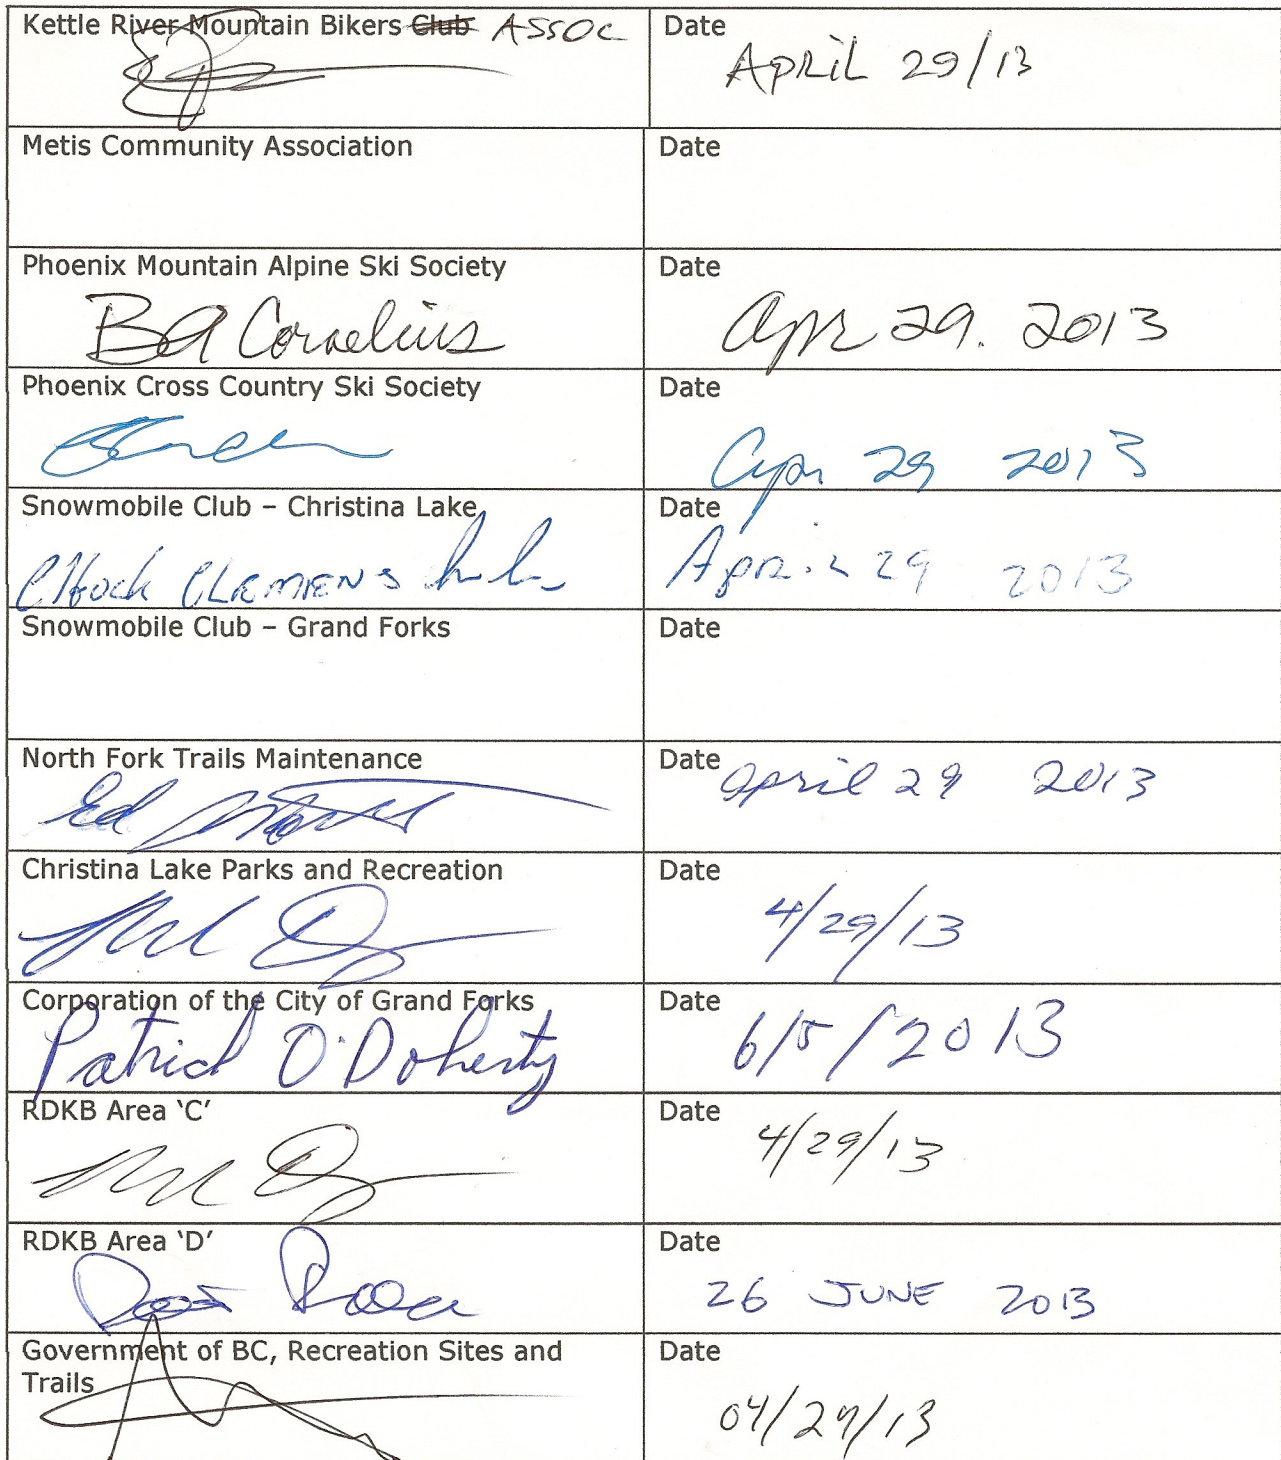 Kettle River Mountain Bikers Club ASSOC
Date
April 29/13
Metis Community Association
Date
Phoenix Mountain Alpine Ski Society
Date
BA Cornelius
Apr 29. 2013
Phoenix Cross Country Ski Society
Date
Apr 29 2013
Snowmobile Club – Christina Lake
Date
CLEMENS
April 29 2013
Snowmobile Club – Grand Forks
Date
North Fork Trails Maintenance
Date
Ed
April 29 2013
Christina Lake Parks and Recreation
Date
4/29/13
Corporation of the City of Grand Forks
Date
Patrick O'Doherty
6/5/2013
RDKB Area ‘C’
Date
4/29/13
RDKB Area ‘D’
Date
26 JUNE 2013
Government of BC, Recreation Sites and
Trails
Date
04/29/13